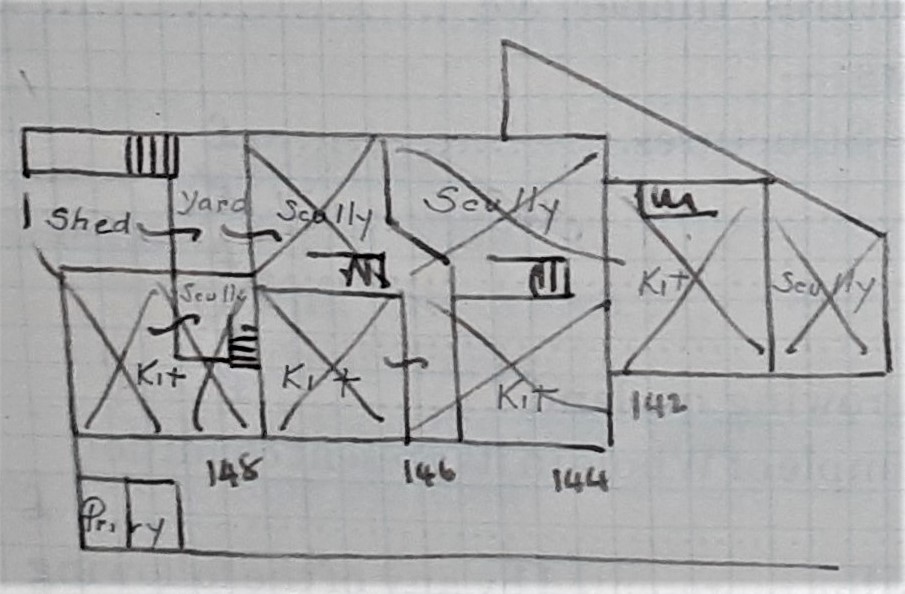 Yard
Shed
Scully
Scully
Scully
Kit
Scully
Kit
Kit
Kit
142
148
146
144
Privy